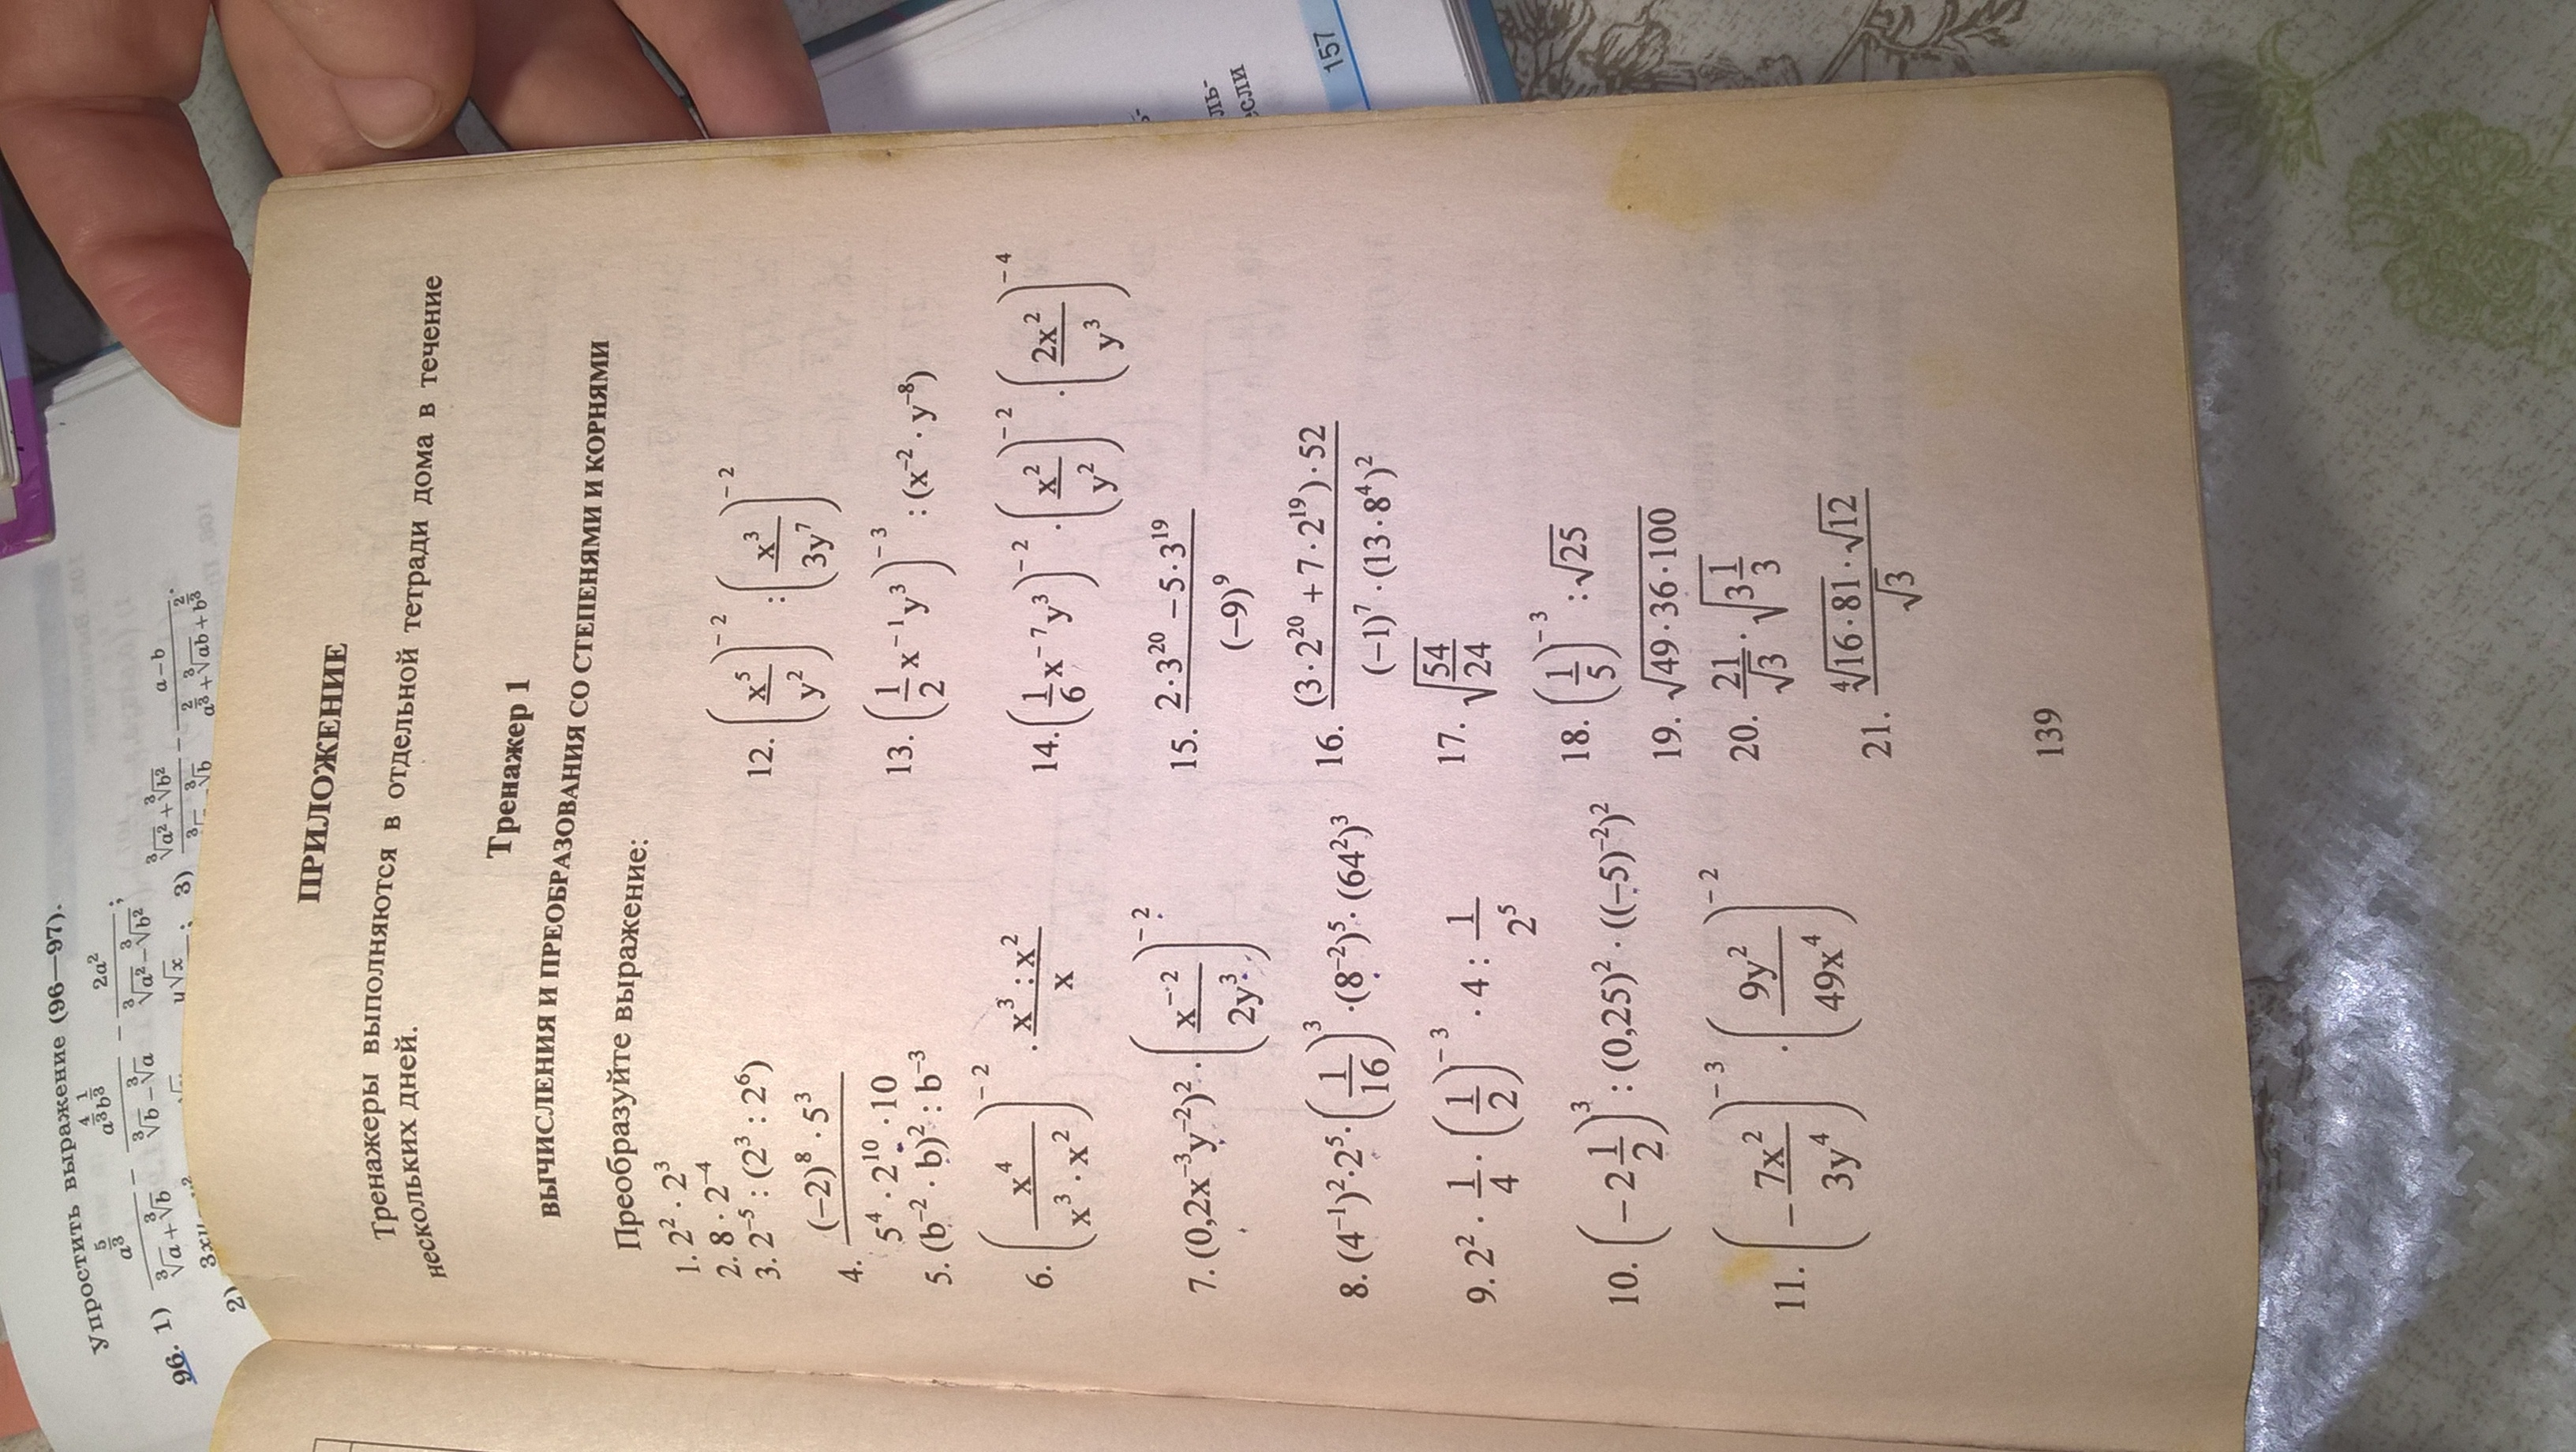 Упростить выражение (96—97).
96. 1) (a^(5/3) ) / (∛a + ∛b) − (a^(4/3)b^(1/3)) / (∛b − ∛a) − 2a² / (∛a² − ∛b²);
(∛a² + ∛b²)
3) − (a − b) / (a^(2/3) + ∛ab + b^(2/3)).
2)
ПРИЛОЖЕНИЕ
Тренажеры выполняются в отдельной тетради дома в течение
нескольких дней.
Тренажер 1
ВЫЧИСЛЕНИЯ И ПРЕОБРАЗОВАНИЯ СО СТЕПЕНЯМИ И КОРНЯМИ
Преобразуйте выражение:
1. 2² · 2³
2. 8 · 2⁻⁴
3. 2⁻⁵ : (2³ : 2⁶)
4. ((−2)⁸ · 5³) / (5⁴ · 2¹⁰ · 10)
5. (b⁻² · b)² : b⁻³
6. (x⁴ / (x³ · x²))⁻² · (x³ : x²) / x
7. (0,2x⁻³y⁻²)² · (x⁻² / 2y³)⁻²
8. (4⁻¹)² · 2⁵ · (1/16)³ · (8⁻²)⁵ · (64²)³
9. 2² · 1/4 · (1/2)⁻³ · 4 : 1/2⁵
10. (−2 1/2)³ : (0,25)² · ((−5)⁻²)²
11. (−7x² / 3y⁴)⁻³ · (9y² / 49x⁴)⁻²
12. (x⁵ / y²)⁻² : (x³ / 3y⁷)⁻²
13. (1/2 x⁻¹y³)⁻³ : (x⁻² · y⁻⁸)
14. (1/6 x⁻⁷y³)⁻² · (x² / y²)⁻² · (2x² / y³)⁻⁴
15. (2 · 3²⁰ − 5 · 3¹⁹) / (−9)⁹
16. ((3 · 2²⁰ + 7 · 2¹⁹) · 52) / ((−1)⁷ · (13 · 8⁴)²)
17. √(54/24)
18. (1/5)⁻³ : √25
19. √(49 · 36 · 100)
20. 21/√3 · √(3 1/3)
21. (⁴√(16 · 81) · √12) / √3
139
ль-
если
157